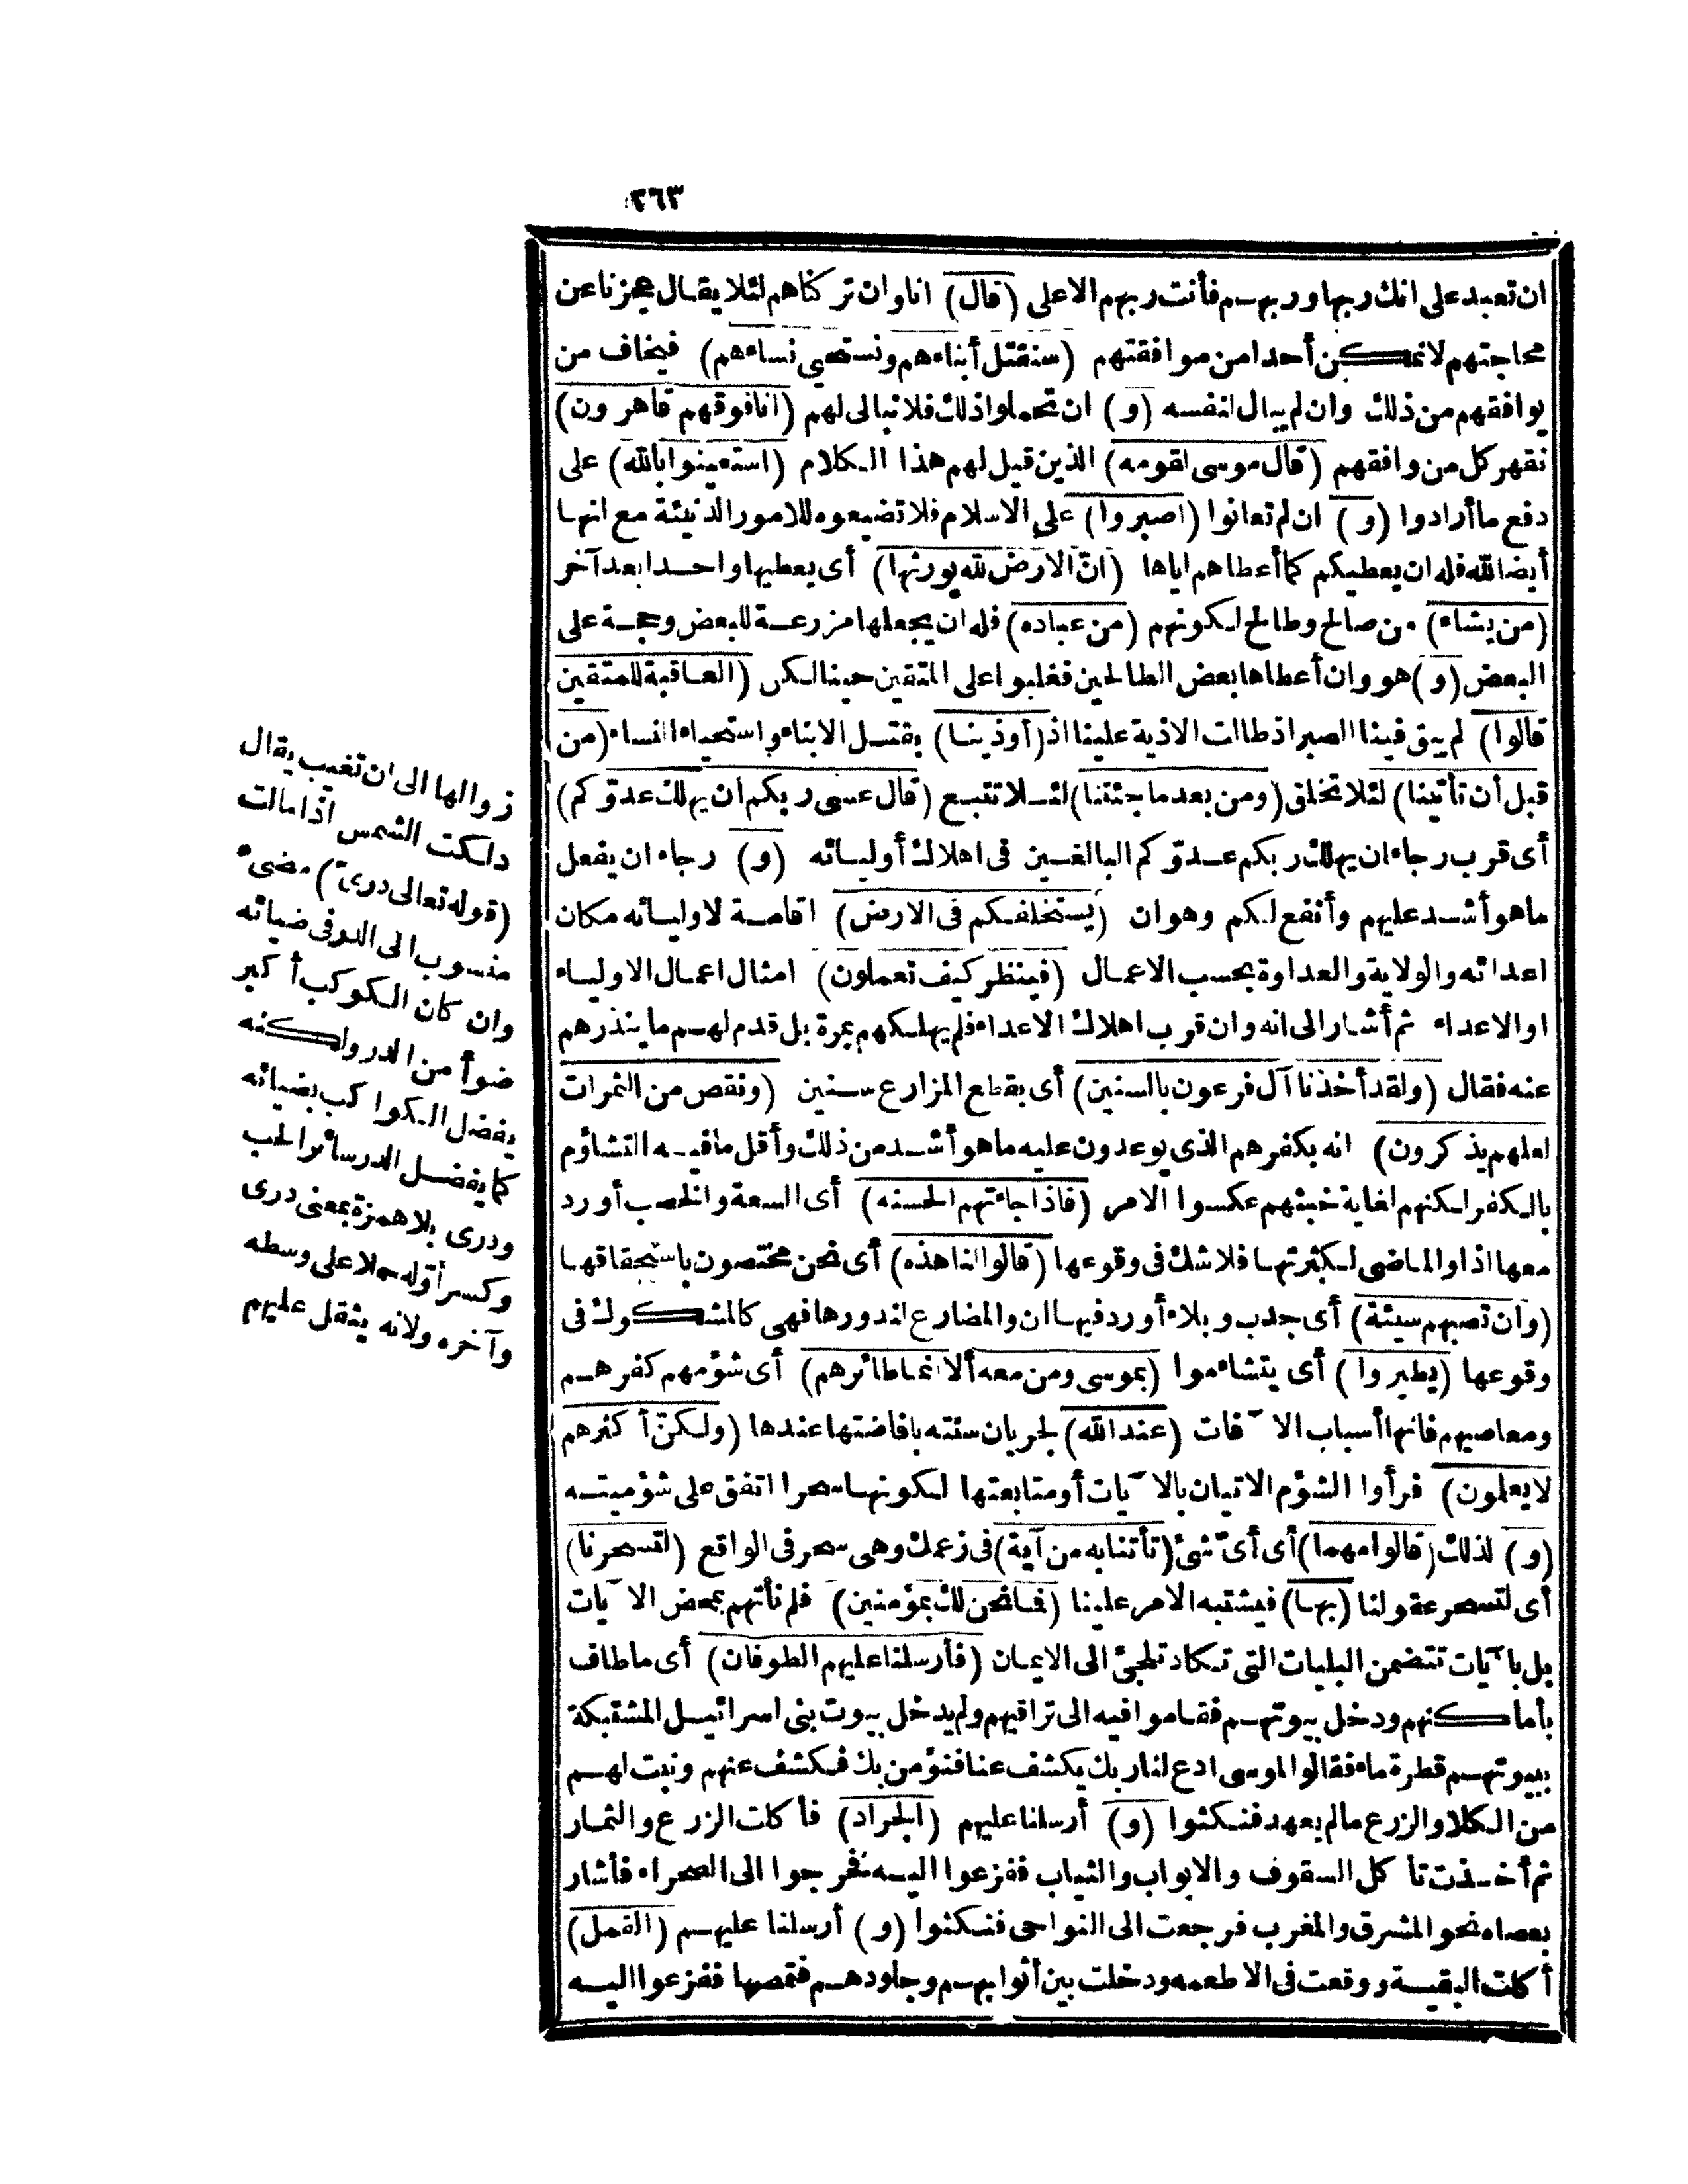 ٢٦٣
ان تعبد على انك ربها وربهم فأنت ربهم الاعلى (قال) انا وان تركناهم لئلا يقال عجزنا عن
محاجتهم لا نمكن أحدا من موافقتهم (سنقتل أبناءهم ونستحيي نساءهم) فيخاف من
يوافقهم من ذلك وان لم يبال لنفسه (و) ان تحملوا ذلك فلا نبالى لهم (انا فوقهم قاهرون)
نقهر كل من وافقهم (قال موسى لقومه) الذين قيل لهم هذا الكلام (استعينوا بالله) على
دفع ما أرادوا (و) ان لم تعانوا (اصبروا) على الاسلام فلا تضيعوه للامور الدنيئة مع انها
أيضا لله فله ان يعطيكم كما أعطاهم اياها (انّ الارض لله يورثها) أى يعطيها واحدا بعد آخر
(من يشاء) من صالح وطالح لكونهم (من عباده) فله ان يجعلها مزرعة للبعض وحجة على
البعض (و) هو وان أعطاها بعض الطالحين فغلبوا على المتقين حينا لكن (العاقبة للمتقين
قالوا) لم يبق فينا الصبر اذ طالت الاذية علينا اذ (أوذينا) بقتل الابناء واستحياء النساء (من
قبل أن تأتينا) لئلا تخلق (ومن بعد ما جئتنا) لئلا تتبع (قال عسى ربكم أن يهلك عدوّكم)
أى قرب رجاء ان يهلك ربكم عدوّكم البالغين فى اهلاك أوليائه (و) رجاء ان يفعل
ما هو أشد عليهم وأنفع لكم وهو ان (يستخلفكم فى الارض) اقامة لاوليائه مكان
اعدائه والولاية والعداوة بحسب الاعمال (فينظر كيف تعملون) امثال اعمال الاولياء
او الاعداء ثم أشار الى انه وان قرب اهلاك الاعداء فلم يهلكهم بمرة بل قدم لهم ما ينذرهم
عنه فقال (ولقد أخذنا آل فرعون بالسنين) أى بقطع المزارع سنين (ونقص من الثمرات
لعلهم يذكرون) انه بكفرهم الذى يوعدون عليه ما هو أشد من ذلك وأقل ما فيه التشاؤم
بالكفر لكنهم لغاية خبثهم عكسوا الامر (فاذا جاءتهم الحسنه) أى السعة والخصب أورد
معها اذا والماضى لكثرتها فلا شك فى وقوعها (قالوا لنا هذه) أى نحن مختصون باستحقاقها
(وان تصبهم سيئة) أى جدب وبلاء أورد فيها ان والمضارع لندورها فهى كالمشكوك فى
وقوعها (يطيروا) أى يتشاءموا (بموسى ومن معه ألا انما طائرهم) أى شؤمهم كفرهم
ومعاصيهم فانها أسباب الآفات (عند الله) لجريان سنته بافاضتها عندها (ولكنّ أكثرهم
لا يعلمون) فرأوا الشؤم الاتيان بالآيات أو متابعتها لكونها سحرا اتفق على شؤميته
(و) لذلك (قالوا مهما) أى أىّ شئ (تأتنا به من آية) فى زعمك وهى سحر فى الواقع (لتسحرنا)
أى لتسحر عقولنا (بها) فيشتبه الامر علينا (فما نحن لك بمؤمنين) فلم نأتهم ببعض الآيات
بل بآيات تتضمن البليات التى تكاد تلجئ الى الايمان (فأرسلنا عليهم الطوفان) أى ما طاف
بأماكنهم ودخل بيوتهم فقاموا فيه الى تراقيهم ولم يدخل بيوت بنى اسرائيل المشتبكة
ببيوتهم قطرة ماء فقالوا لموسى ادع لنا ربك يكشف عنا فنؤمن بك فكشف عنهم ونبت لهم
من الكلا والزرع ما لم يعهد فنكثوا (و) أرسلنا عليهم (الجراد) فأكلت الزرع والثمار
ثم أخذت تأكل السقوف والابواب والثياب ففزعوا اليه فخرجوا الى الصحراء فأشار
بعصاه نحو المشرق والمغرب فرجعت الى النواحى فنكثوا (و) أرسلنا عليهم (القمل)
أكلت البقية ووقعت فى الاطعمه ودخلت بين أثوابهم وجلودهم فتمصها ففزعوا اليه
زوالها الى ان تغيب يقال
دلكت الشمس اذا مالت
(قوله تعالى درىّ) مضىء
منسوب الى الدر فى ضيائه
وان كان الكوكب أكبر
ضوأ من الدر ولكنه
يفضل الكواكب بضيائه
كما يفضل الدر سائر الحب
ودرى بلا همزة بمعنى درى
وكسر أوّله حملا على وسطه
وآخره ولانه يثقل عليهم